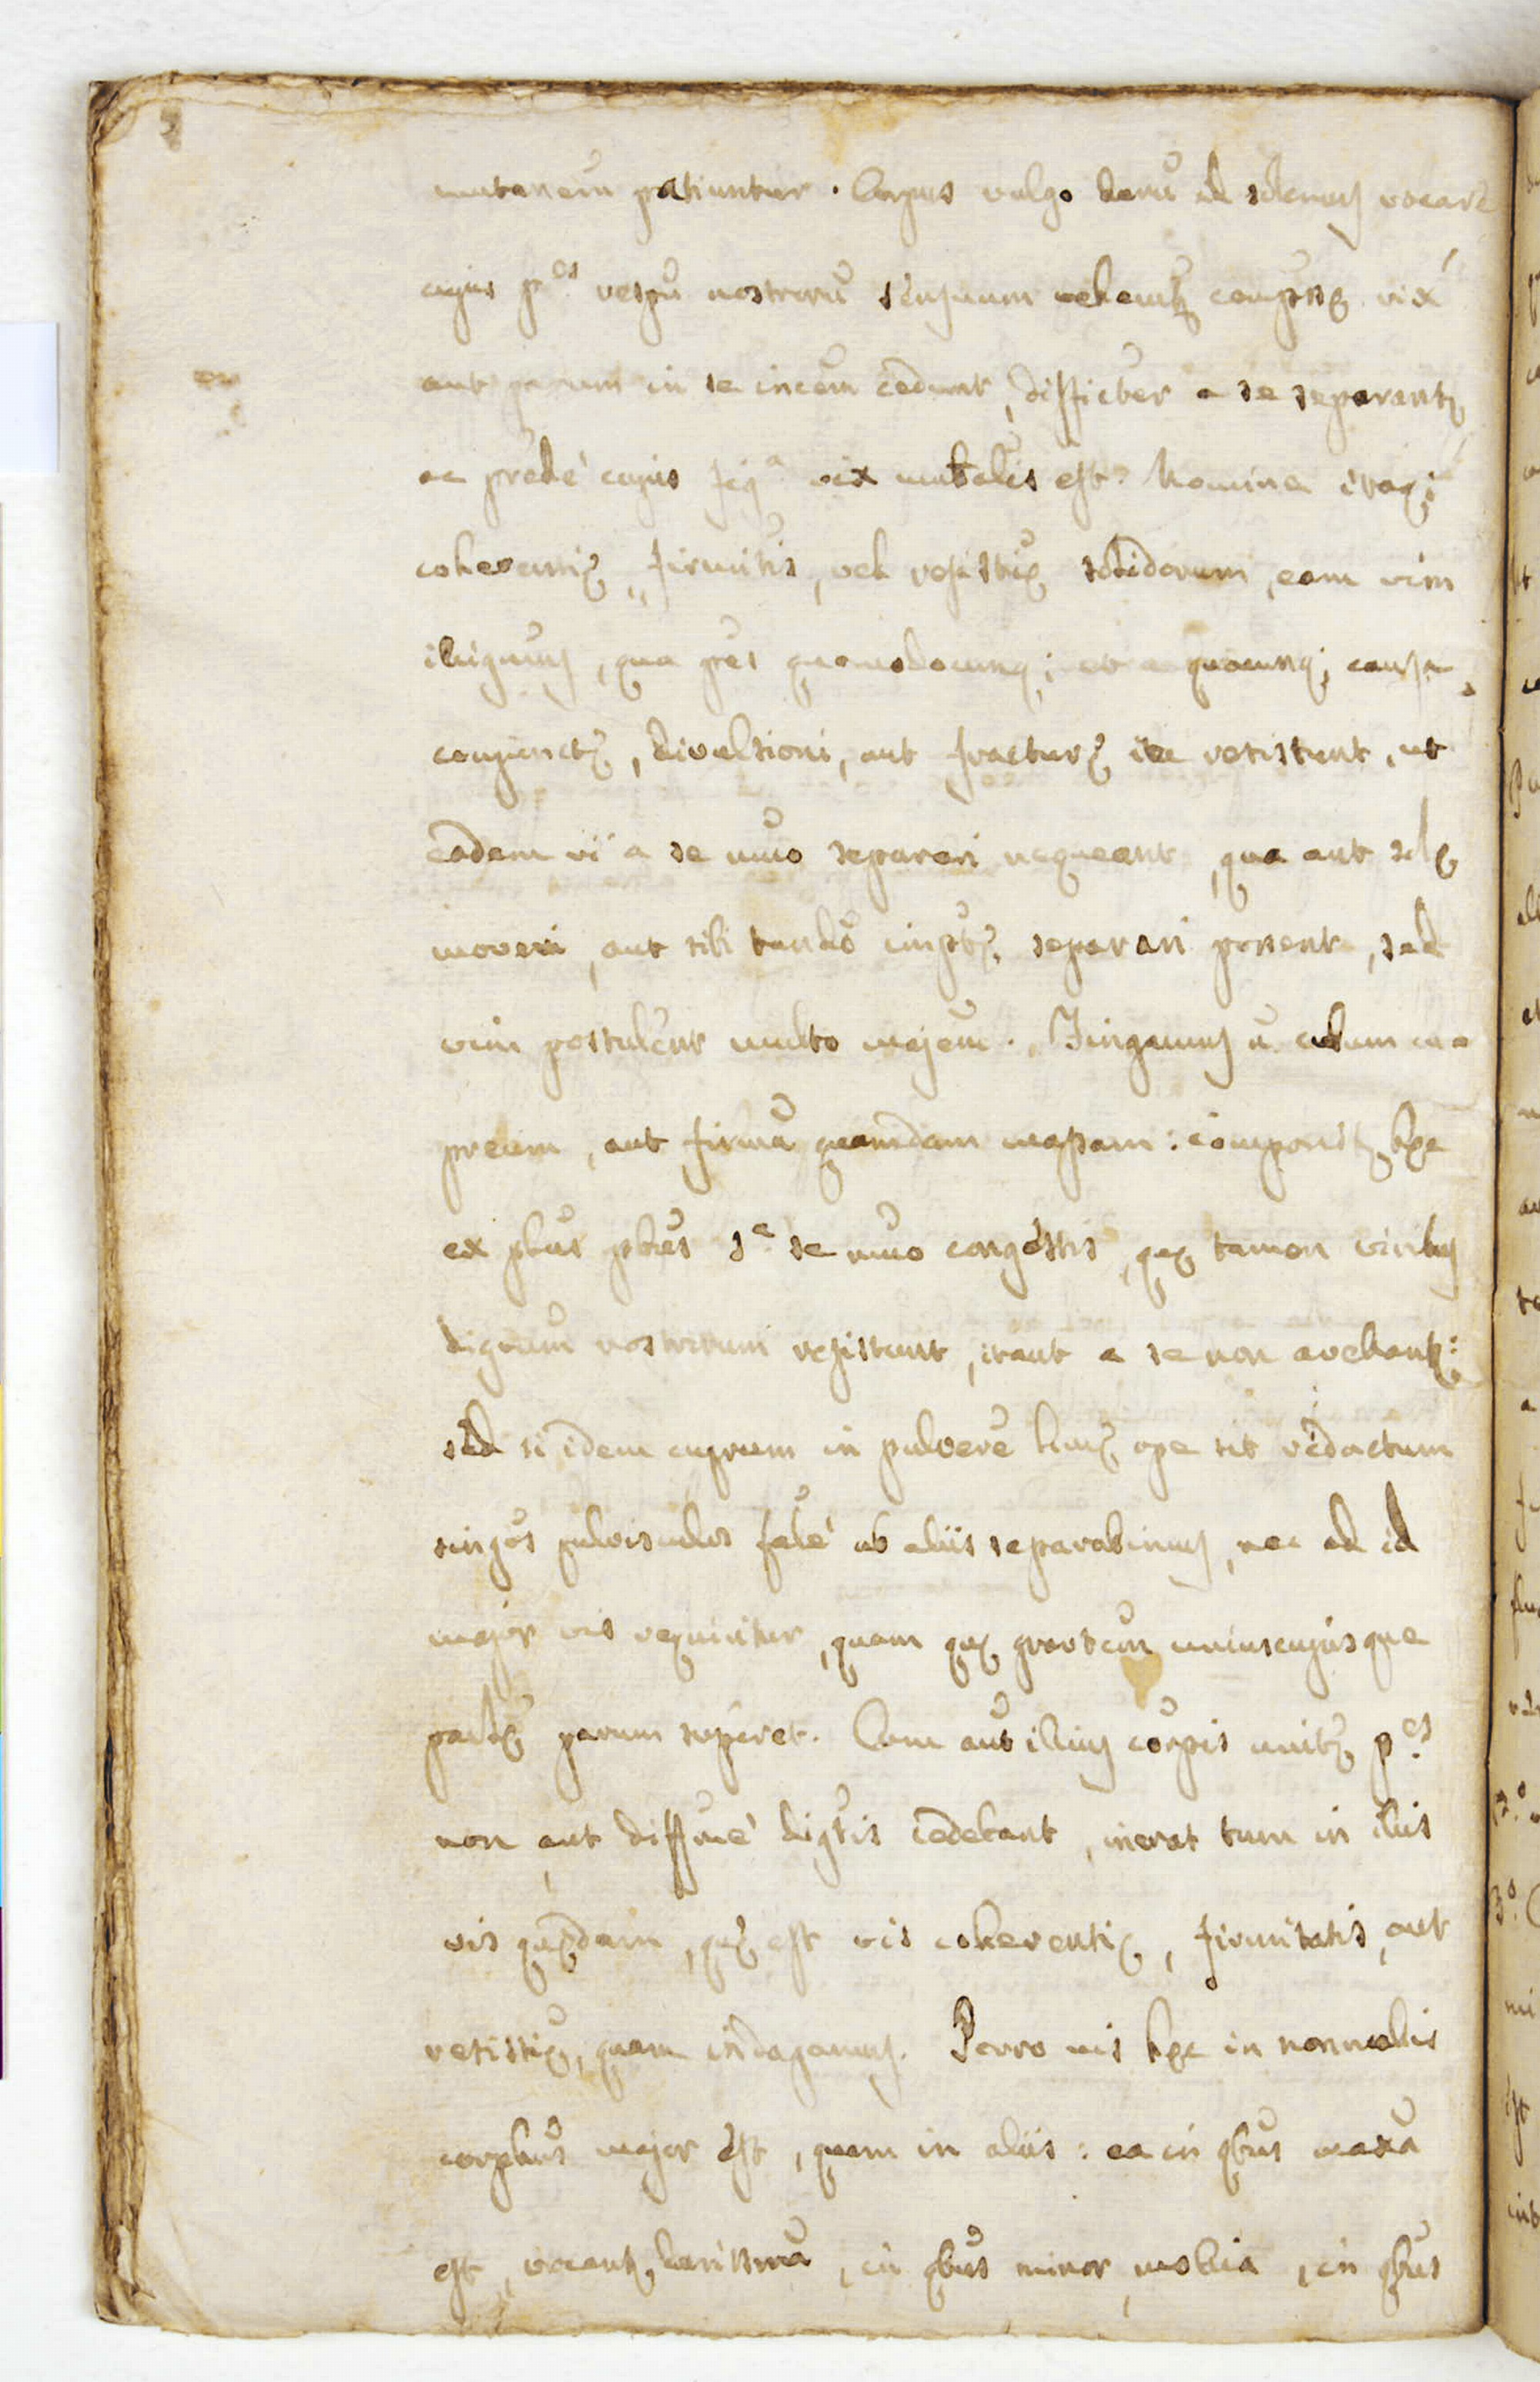 mutanem̃ patiuntur. Corpus vulgo durũ ad solemus vocare
cujus p.es respũ nostrorũ sensuum vehemtr̃ compressę vix
aut parum in se invem̃ cedunt, difficter a se separantr
ac prĕdé cujus fig.a vix mutalis est. Nomine itaq;
coherentię, firmitis, vel resistię solidorum, eam vim
intelligimus, qua pres quomodocunq; et a quacunq; causa
conjunctę, divulsioni, aut fracturę ita resistunt, ut
eadem vi a se muo separari nequeant, qua aut solę
moveri, aut sibi tantũ impostę, separari possent, sed
vim postulent multo majem. Fingamus ũ cubum cu-
preum, aut firmã quamdam massam: componitr hęc
ex plbus ptbus s.e se muo congestis, quę tamen viribus
digitum nostrorum resistunt, itaut a se non avelantr:
sed si idem cuprum in pulverẽ limę ope sit redactum
singos pulvisculos falé ab aliis separabimus, nec ad id
major vis requiritur, quam quę gravtem uniuscujusque
partię parum superet. Cum aut illius corpis unitę p.es
non aut diffné digtis cedebant, inerat tum in illis
vis quędam, quę est vis coherentię, firmitatis, aut
resistię, quam indagamus. Porro vis hęc in nonnullis
corpbus major est, quam in aliis: ea in qbus maxã
est, vocantr durissima, in qbus minor, mollia, in qbus